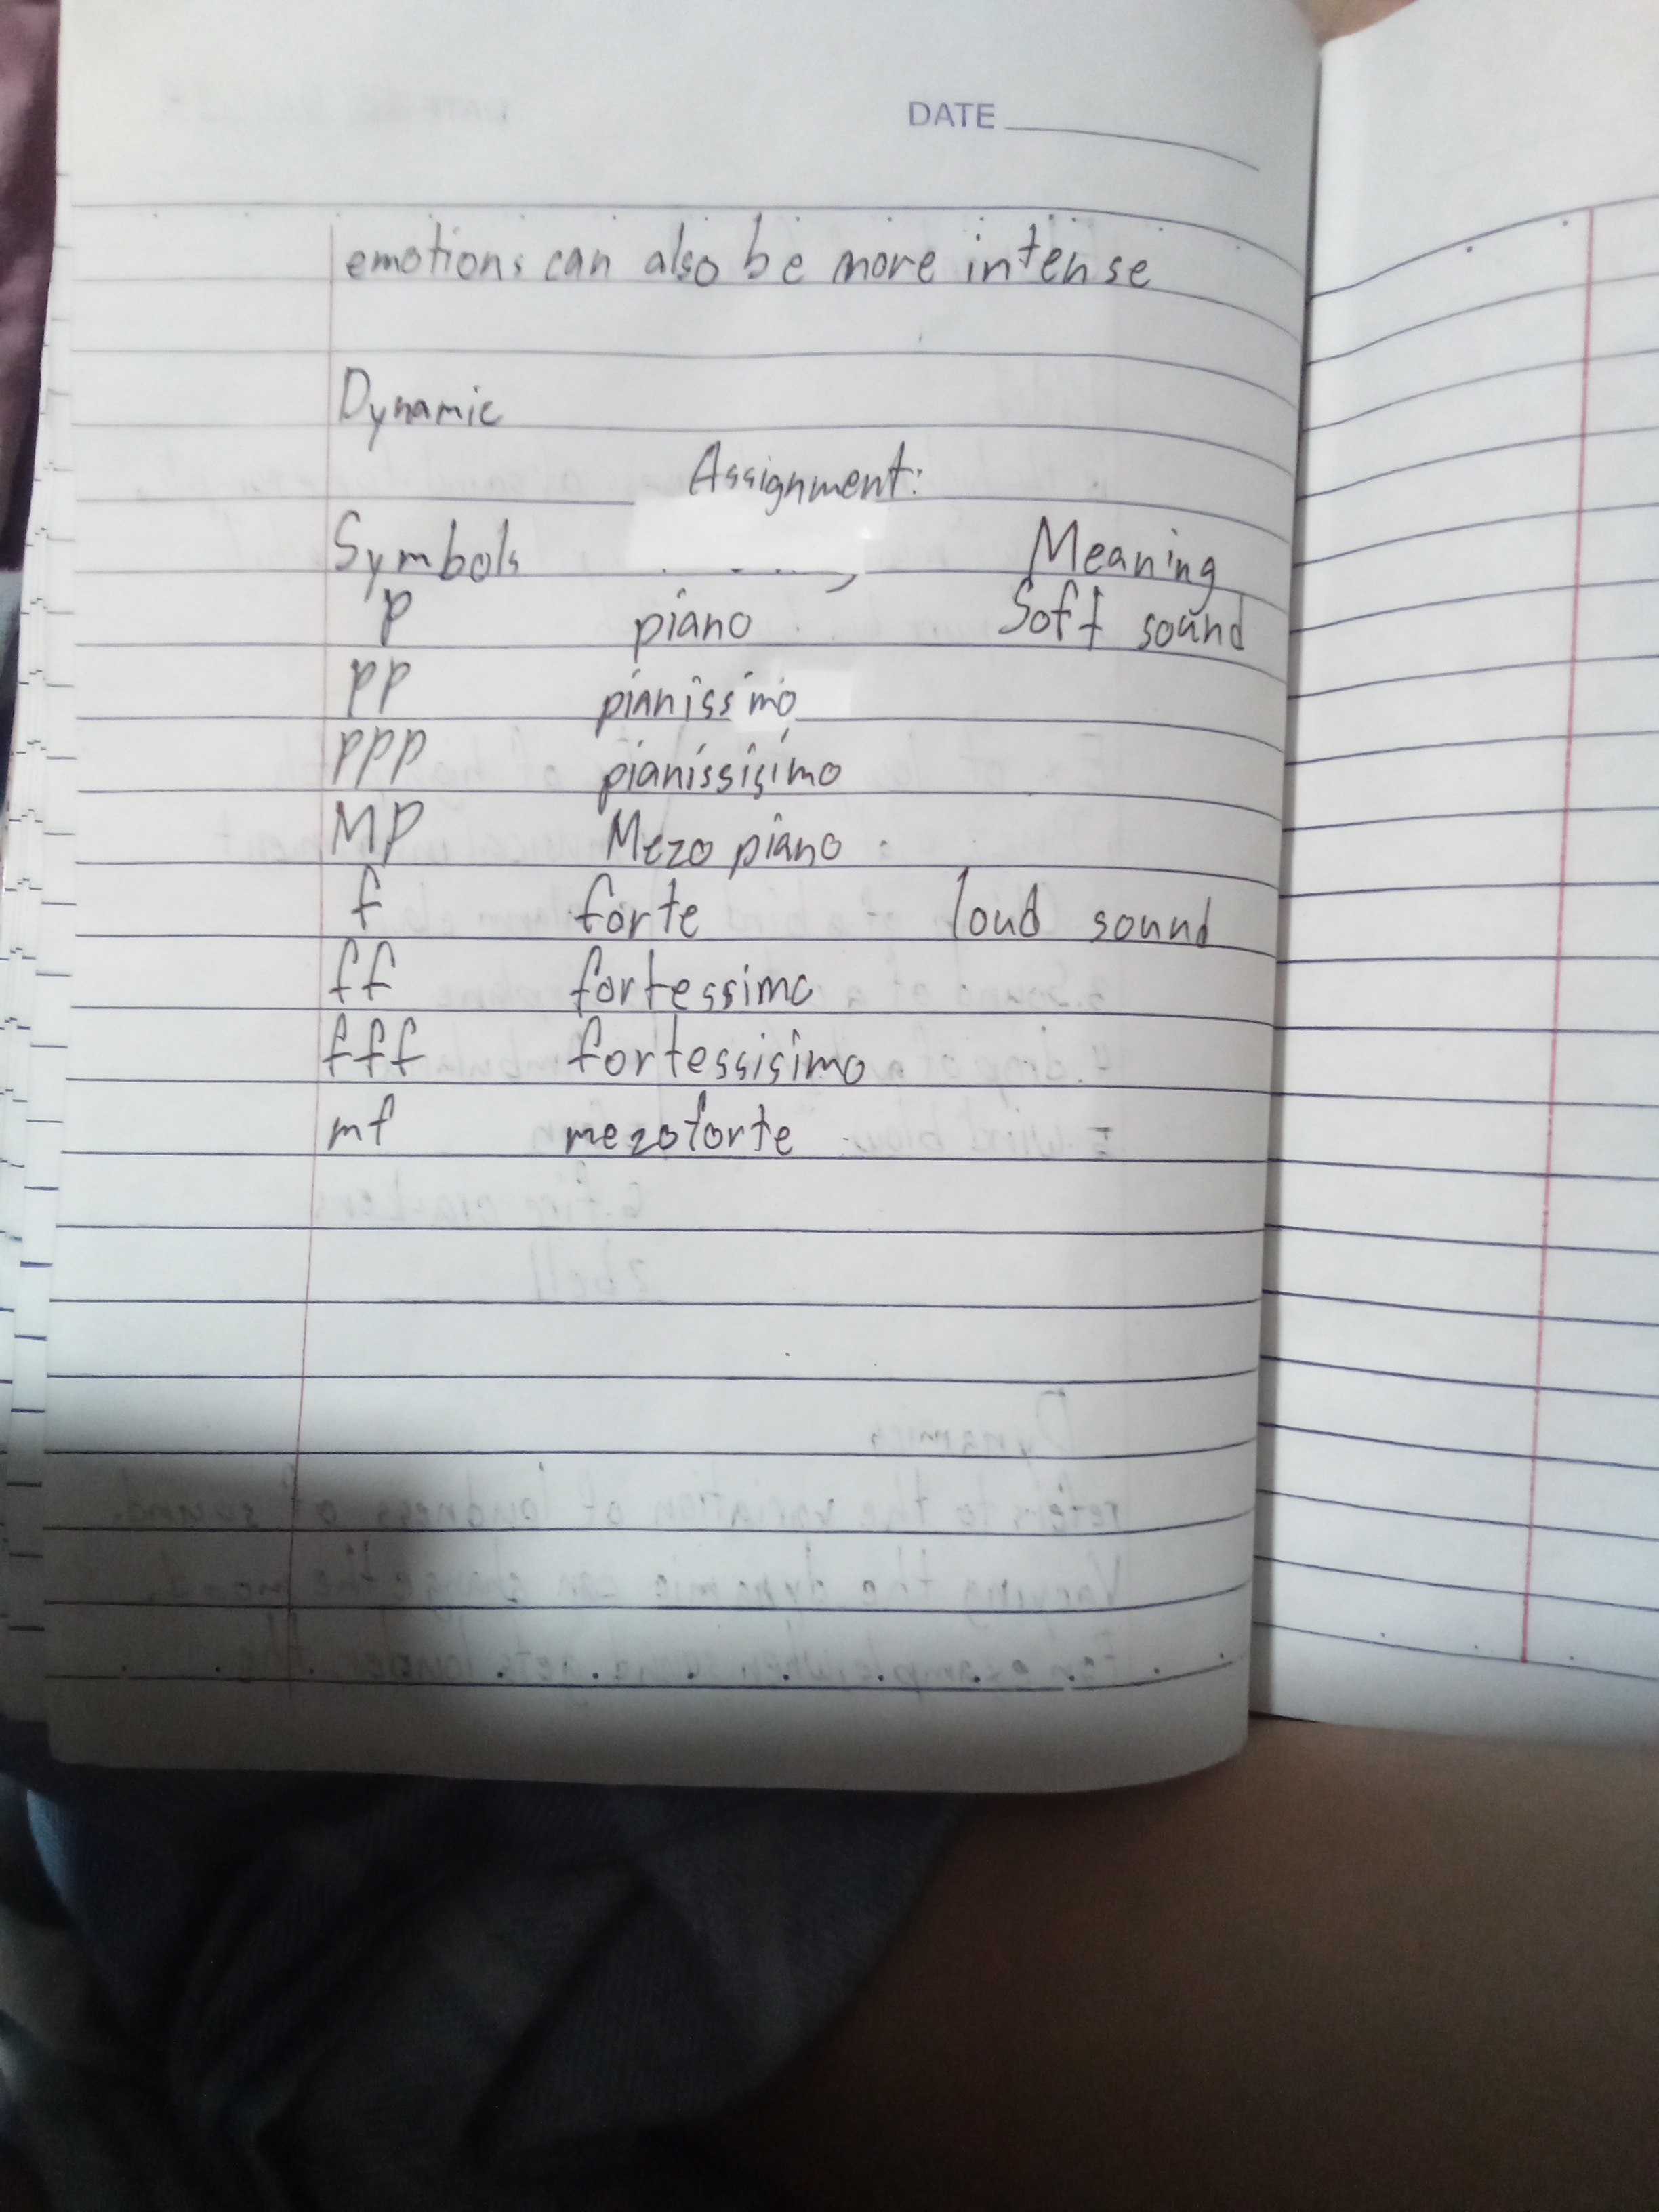 DATE
emotions can also be more intense
Dynamic
Assignment:
Symbols Meaning
p piano Soft sound
pp pianissimo
ppp pianississimo
MP Mezo piano
f forte loud sound
ff fortessimo
fff fortessisimo
mf mezoforte